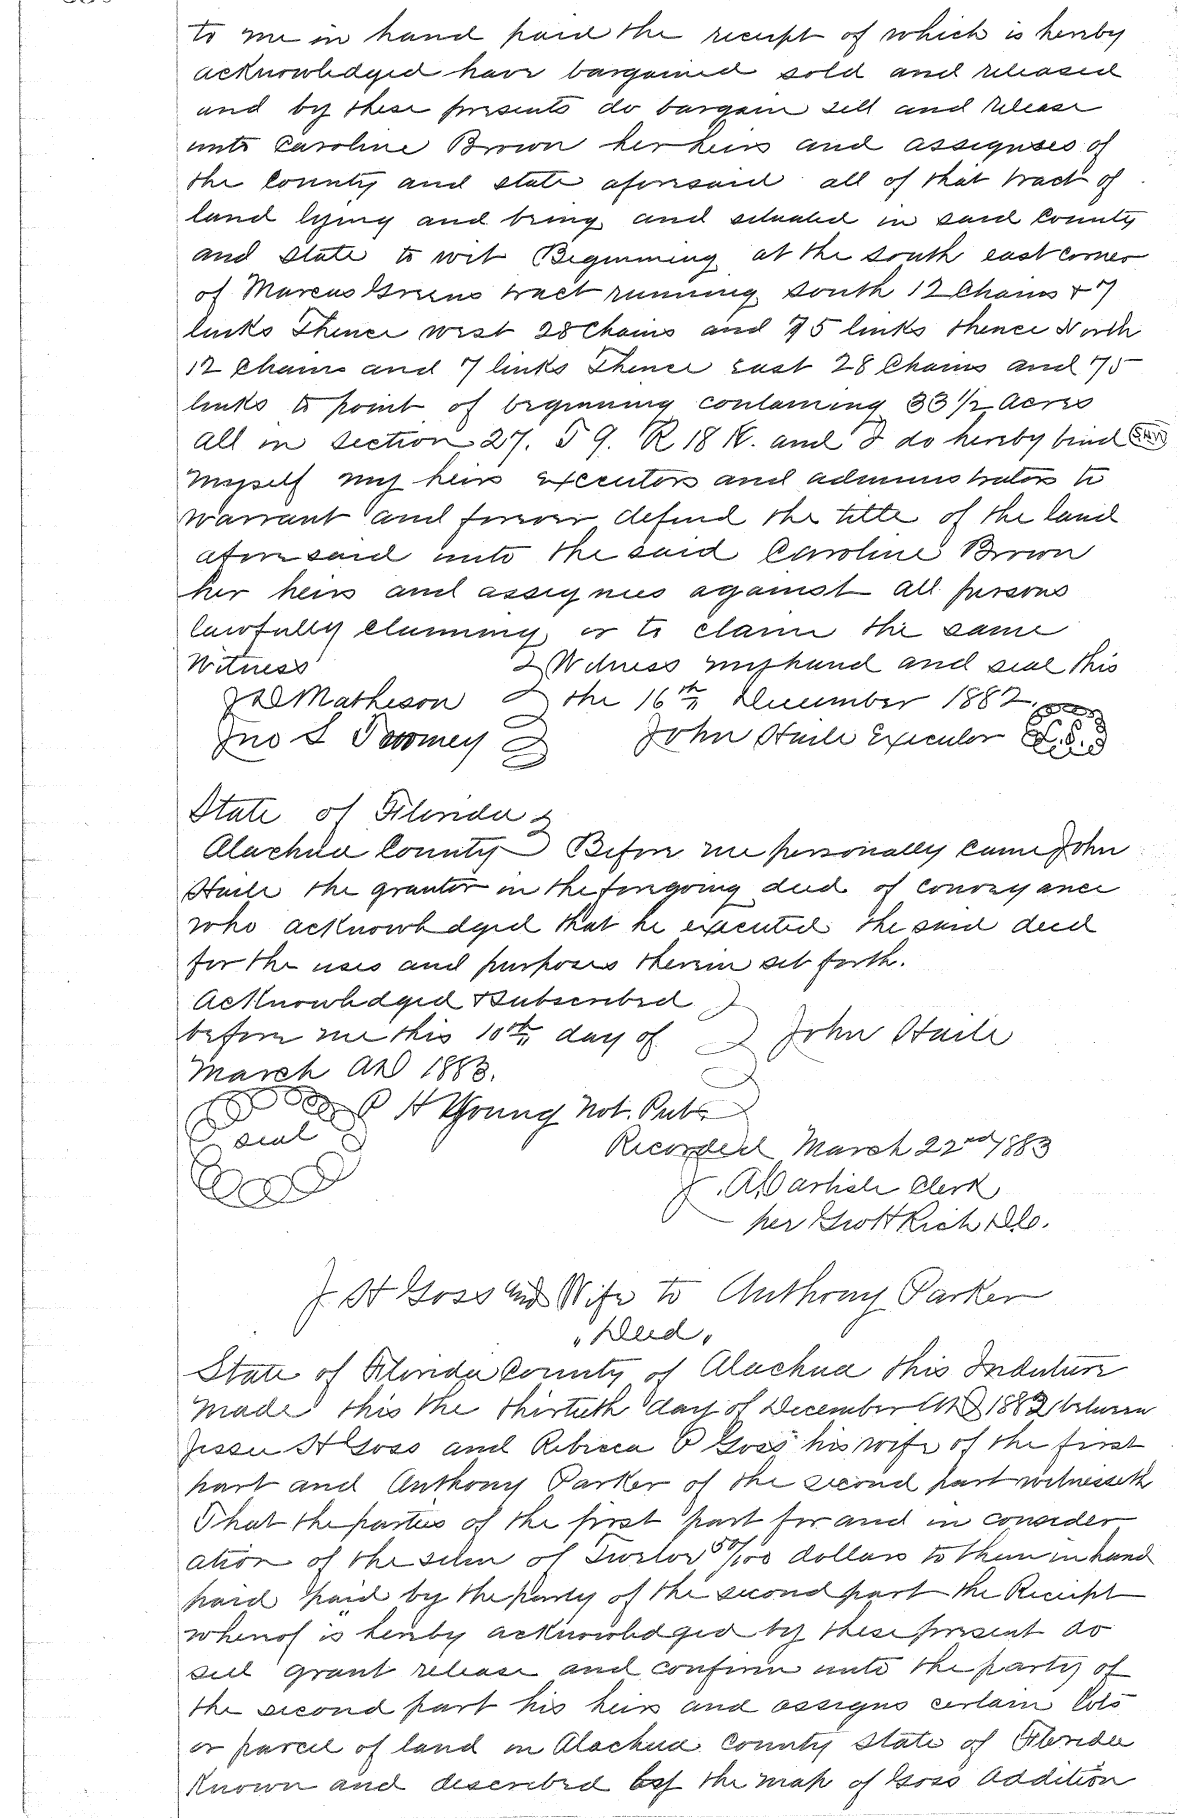 to me in hand paid the receipt of which is hereby
acknowledged have bargained sold and released
and by these presents do bargain sell and release
unto Caroline Brown her heirs and assignees of
the County and State aforesaid all of that tract of
land lying and being and situated in said County
and State to wit Beginning at the south east corner
of Marcus Greens tract running South 12 Chains & 7
links Thence west 28 Chains and 75 links thence North
12 Chains and 7 links Thence East 28 Chains and 75
links to point of beginning containing 33 1/2 Acres
all in Section 27. T 9. R 18 and I do hereby bind
myself my heirs executors and administrators to
warrant and forever defend the title of the land
aforesaid unto the said Caroline Brown
her heirs and assignees against all persons
lawfully claiming or to claim the same
Witness Witness my hand and seal this
J D Matheson the 16th December 1882.
Jno S Twomey John Haile Executor L.S.
State of Florida
Alachua County Before me personally came John
Haile the grantor in the foregoing deed of conveyance
who acknowledged that he executed the said deed
for the uses and purposes therein set forth.
Acknowledged & Subscribed
before me this 10th day of John Haile
March AD 1883.
P H Young Not. Pub
seal
Recorded March 22nd 1883
J. A. Carlisle Clerk
per Geo H Rich D.C.
J H Goss and Wife to Anthony Parker
"Deed"
State of Florida County of Alachua this Indenture
made this the thirtieth day of December AD 1882 between
Jesse H Goss and Rebecca P Goss his wife of the first
part and Anthony Parker of the second part witnesseth
That the parties of the first part for and in consider
ation of the sum of Twelve 50/100 dollars to them in hand
paid paid by the party of the second part the Receipt
whereof is hereby acknowledged by these present do
sell grant release and confirm unto the party of
the second part his heirs and assigns certain Lots
or parcel of land in Alachua County State of Florida
Known and described by the map of Goss Addition